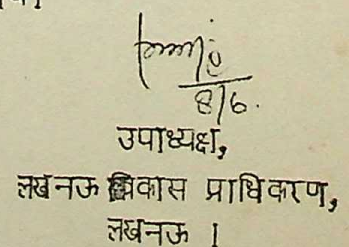 8/6.
उपाध्यक्ष,
लखनऊ विकास प्राधिकरण,
लखनऊ ।